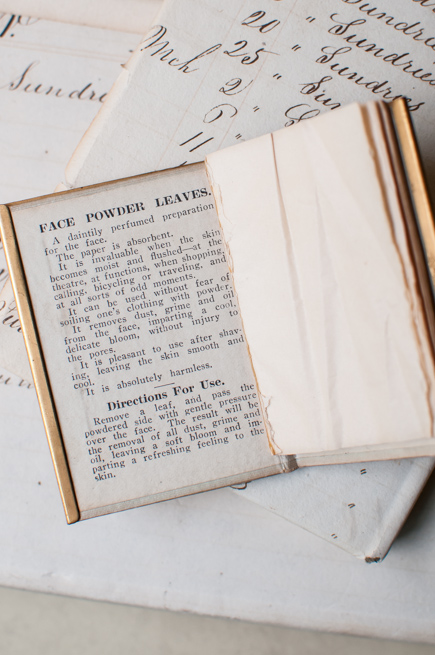 20 " Sundries
Mch 25 " Sundries
2 " Sundros
6 "
11
Sundrie
FACE POWDER LEAVES.
A daintily perfumed preparation
for the face.
The paper is absorbent.
It is invaluable when the skin
becomes moist and flushed—at the
theatre, at functions, when shopping,
calling, bicycling or traveling, and
at all sorts of odd moments.
It can be used without fear of
soiling one's clothing with powder.
It removes dust, grime and oil
from the face, imparting a cool,
delicate bloom, without injury to
the pores.
It is pleasant to use after shav-
ing, leaving the skin smooth and
cool.
It is absolutely harmless.
Directions For Use.
Remove a leaf, and pass the
powdered side with gentle pressure
over the face. The result will be
the removal of all dust, grime and
oil, leaving a soft bloom and im-
parting a refreshing feeling to the
skin.